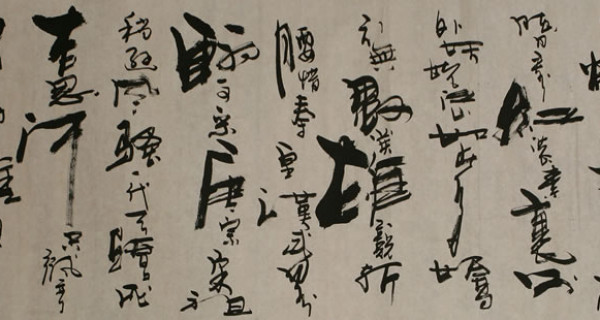 晴日看红装素裹分
外妖娆江山如此多娇
引無數英雄競折
腰惜秦皇漢武略
輸文采唐宗宋祖
稍遜風騷一代天驕成
吉思汗只識